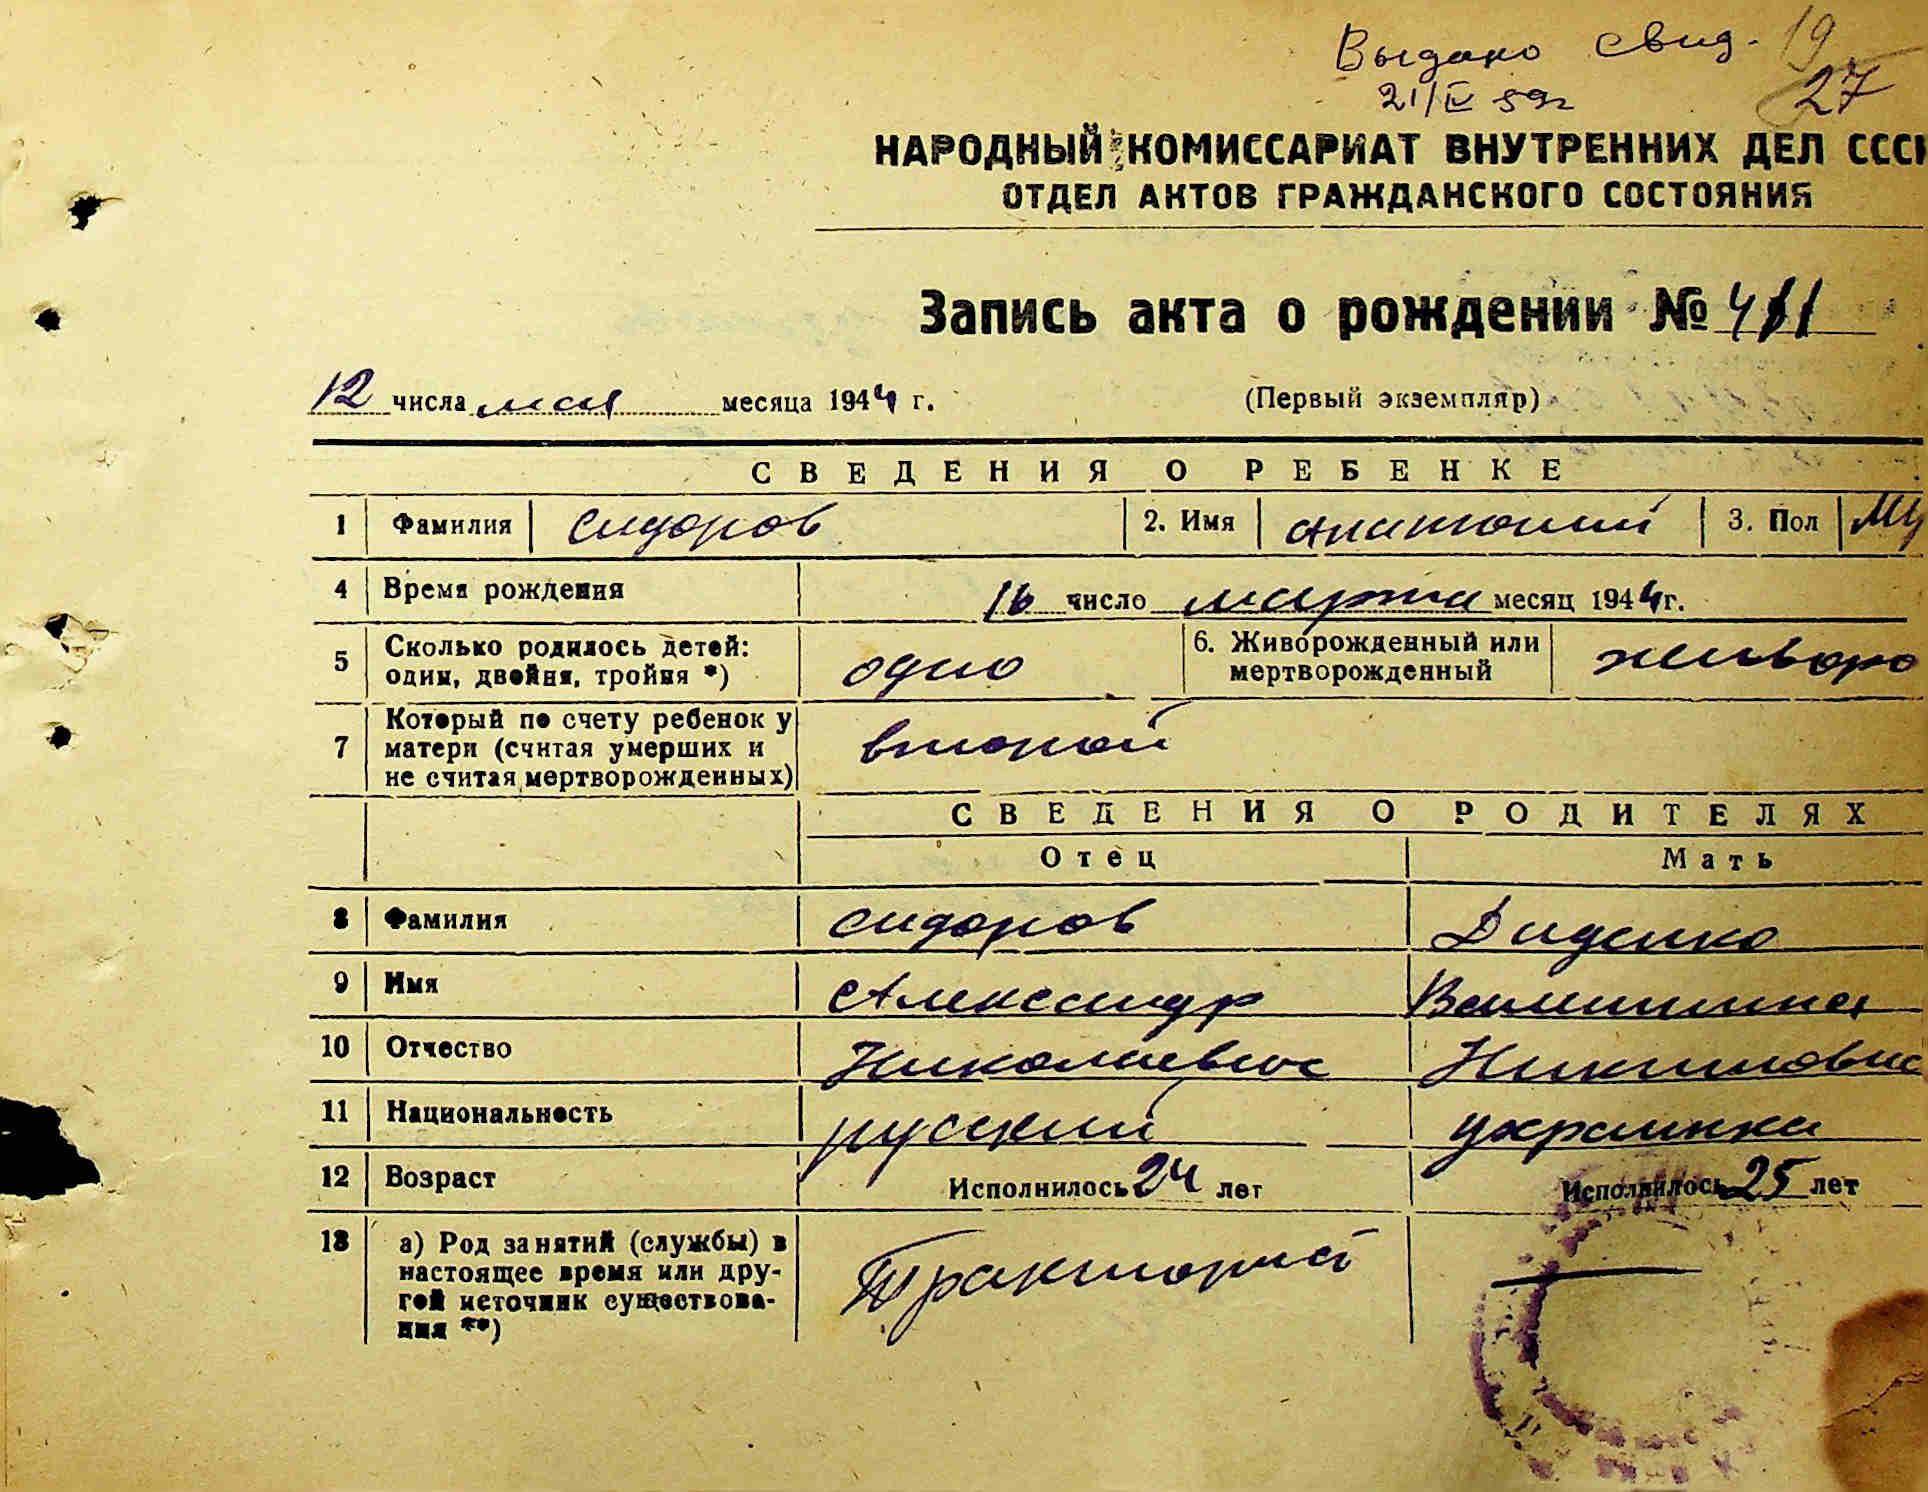 Выдано свид. 19
21/IV 59г 27
НАРОДНЫЙ КОМИССАРИАТ ВНУТРЕННИХ ДЕЛ СССР
ОТДЕЛ АКТОВ ГРАЖДАНСКОГО СОСТОЯНИЯ
Запись акта о рождении № 411
12 числа мая месяца 1944 г. (Первый экземпляр)
СВЕДЕНИЯ О РЕБЕНКЕ
1 Фамилия Сидоров 2. Имя Анатолий 3. Пол Му
4 Время рождения 16 число марта месяц 1944г.
5 Сколько родилось детей: одно 6. Живорожденный или живоро
один, двойня, тройня *) мертворожденный
7 Который по счету ребенок у
матери (считая умерших и второй
не считая мертворожденных)
СВЕДЕНИЯ О РОДИТЕЛЯХ
Отец Мать
8 Фамилия Сидоров Диденко
9 Имя Александр Валентина
10 Отчество Николаевич
11 Национальность русский украинка
12 Возраст Исполнилось 24 лет Исполнилось 25 лет
13 а) Род занятий (службы) в
настоящее время или дру-
гой источник существова-
ния **)